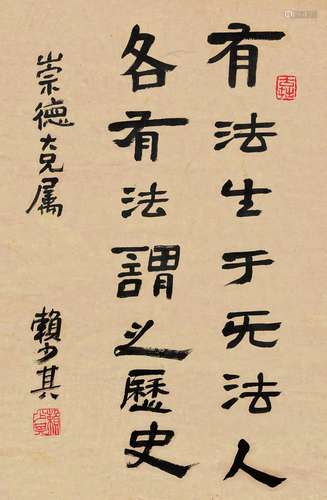 有法生于无法人
各有法謂之歷史
崇德大兄属
賴少其